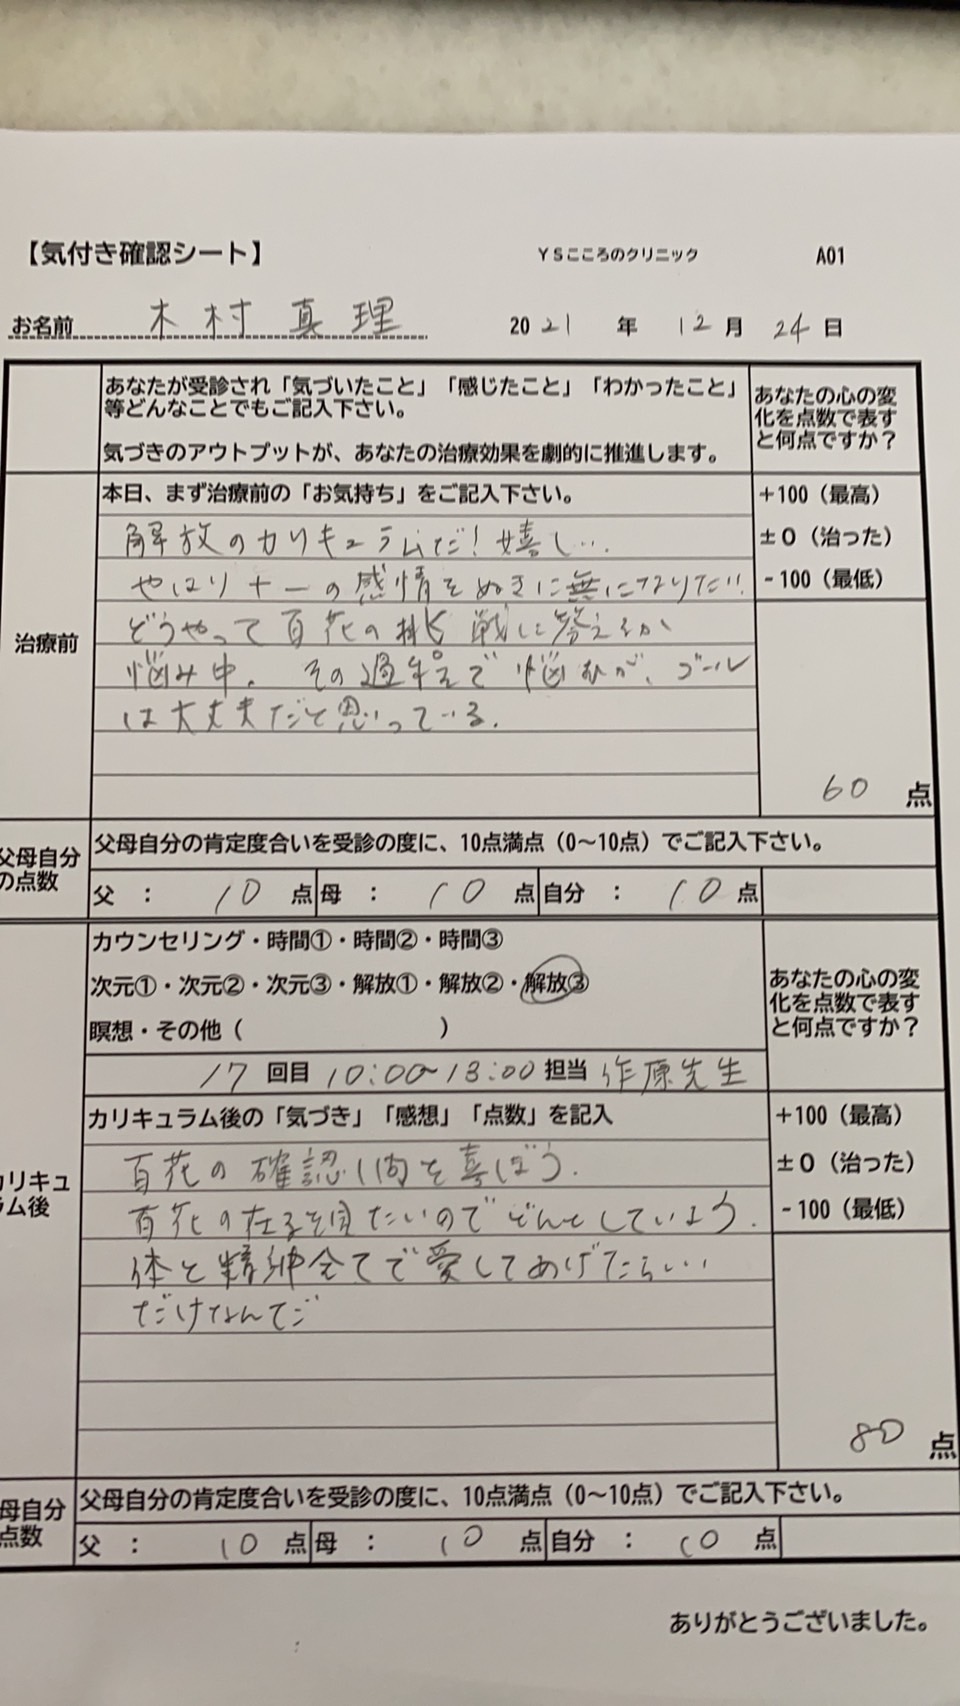 【気付き確認シート】 YSこころのクリニック A01
お名前 木村 真理 2021年 12月 24日
あなたが受診され「気づいたこと」「感じたこと」「わかったこと」
等どんなことでもご記入下さい。
気づきのアウトプットが、あなたの治療効果を劇的に推進します。
あなたの心の変
化を点数で表す
と何点ですか？
治療前
本日、まず治療前の「お気持ち」をご記入下さい。
解放のカリキュラムだ！嬉し…
やはり十一の感情をぬきに無になりたい!!
どうやって百花の挑戦に答えるか
悩み中。その過程で悩むが、ゴール
は大丈夫だと思っている。
+100（最高）
±0（治った）
-100（最低）
60 点
父母自分
の点数
父母自分の肯定度合いを受診の度に、10点満点（0～10点）でご記入下さい。
父 ： 10 点 母 ： 10 点 自分 ： 10 点
カウンセリング・時間①・時間②・時間③
次元①・次元②・次元③・解放①・解放②・解放③
瞑想・その他（ ）
17 回目 10:00～13:00 担当 作原先生
あなたの心の変
化を点数で表す
と何点ですか？
カリキュ
ラム後
カリキュラム後の「気づき」「感想」「点数」を記入
百花の確認行動を喜ぼう.
百花の在るを見たいのでどんとしていよう.
体と精神全てで愛してあげたらいい
だけなんだ
+100（最高）
±0（治った）
-100（最低）
80 点
母自分
点数
父母自分の肯定度合いを受診の度に、10点満点（0～10点）でご記入下さい。
父 ： 10 点 母 ： 10 点 自分 ： 10 点
ありがとうございました。